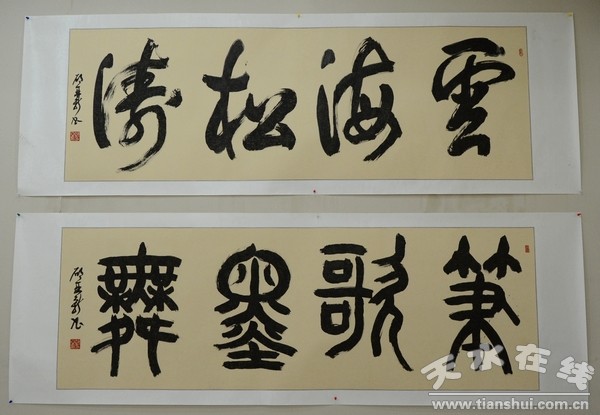 雲海松濤
筆歌墨舞
天水在线
www.tianshui.com.cn